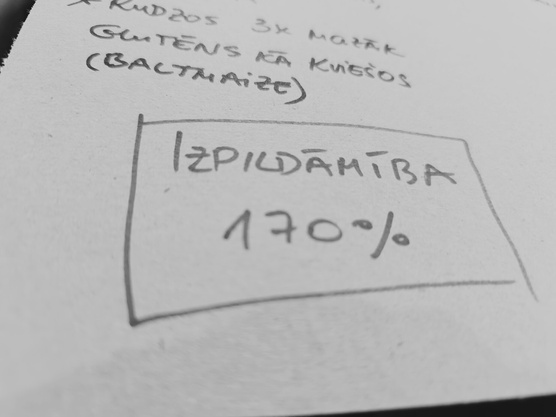 * RUDZOS 3x MAZĀK
GLUTĒNS KĀ KVIEŠOS
(BALTMAIZE)
IZPILDĀMĪBA
170%